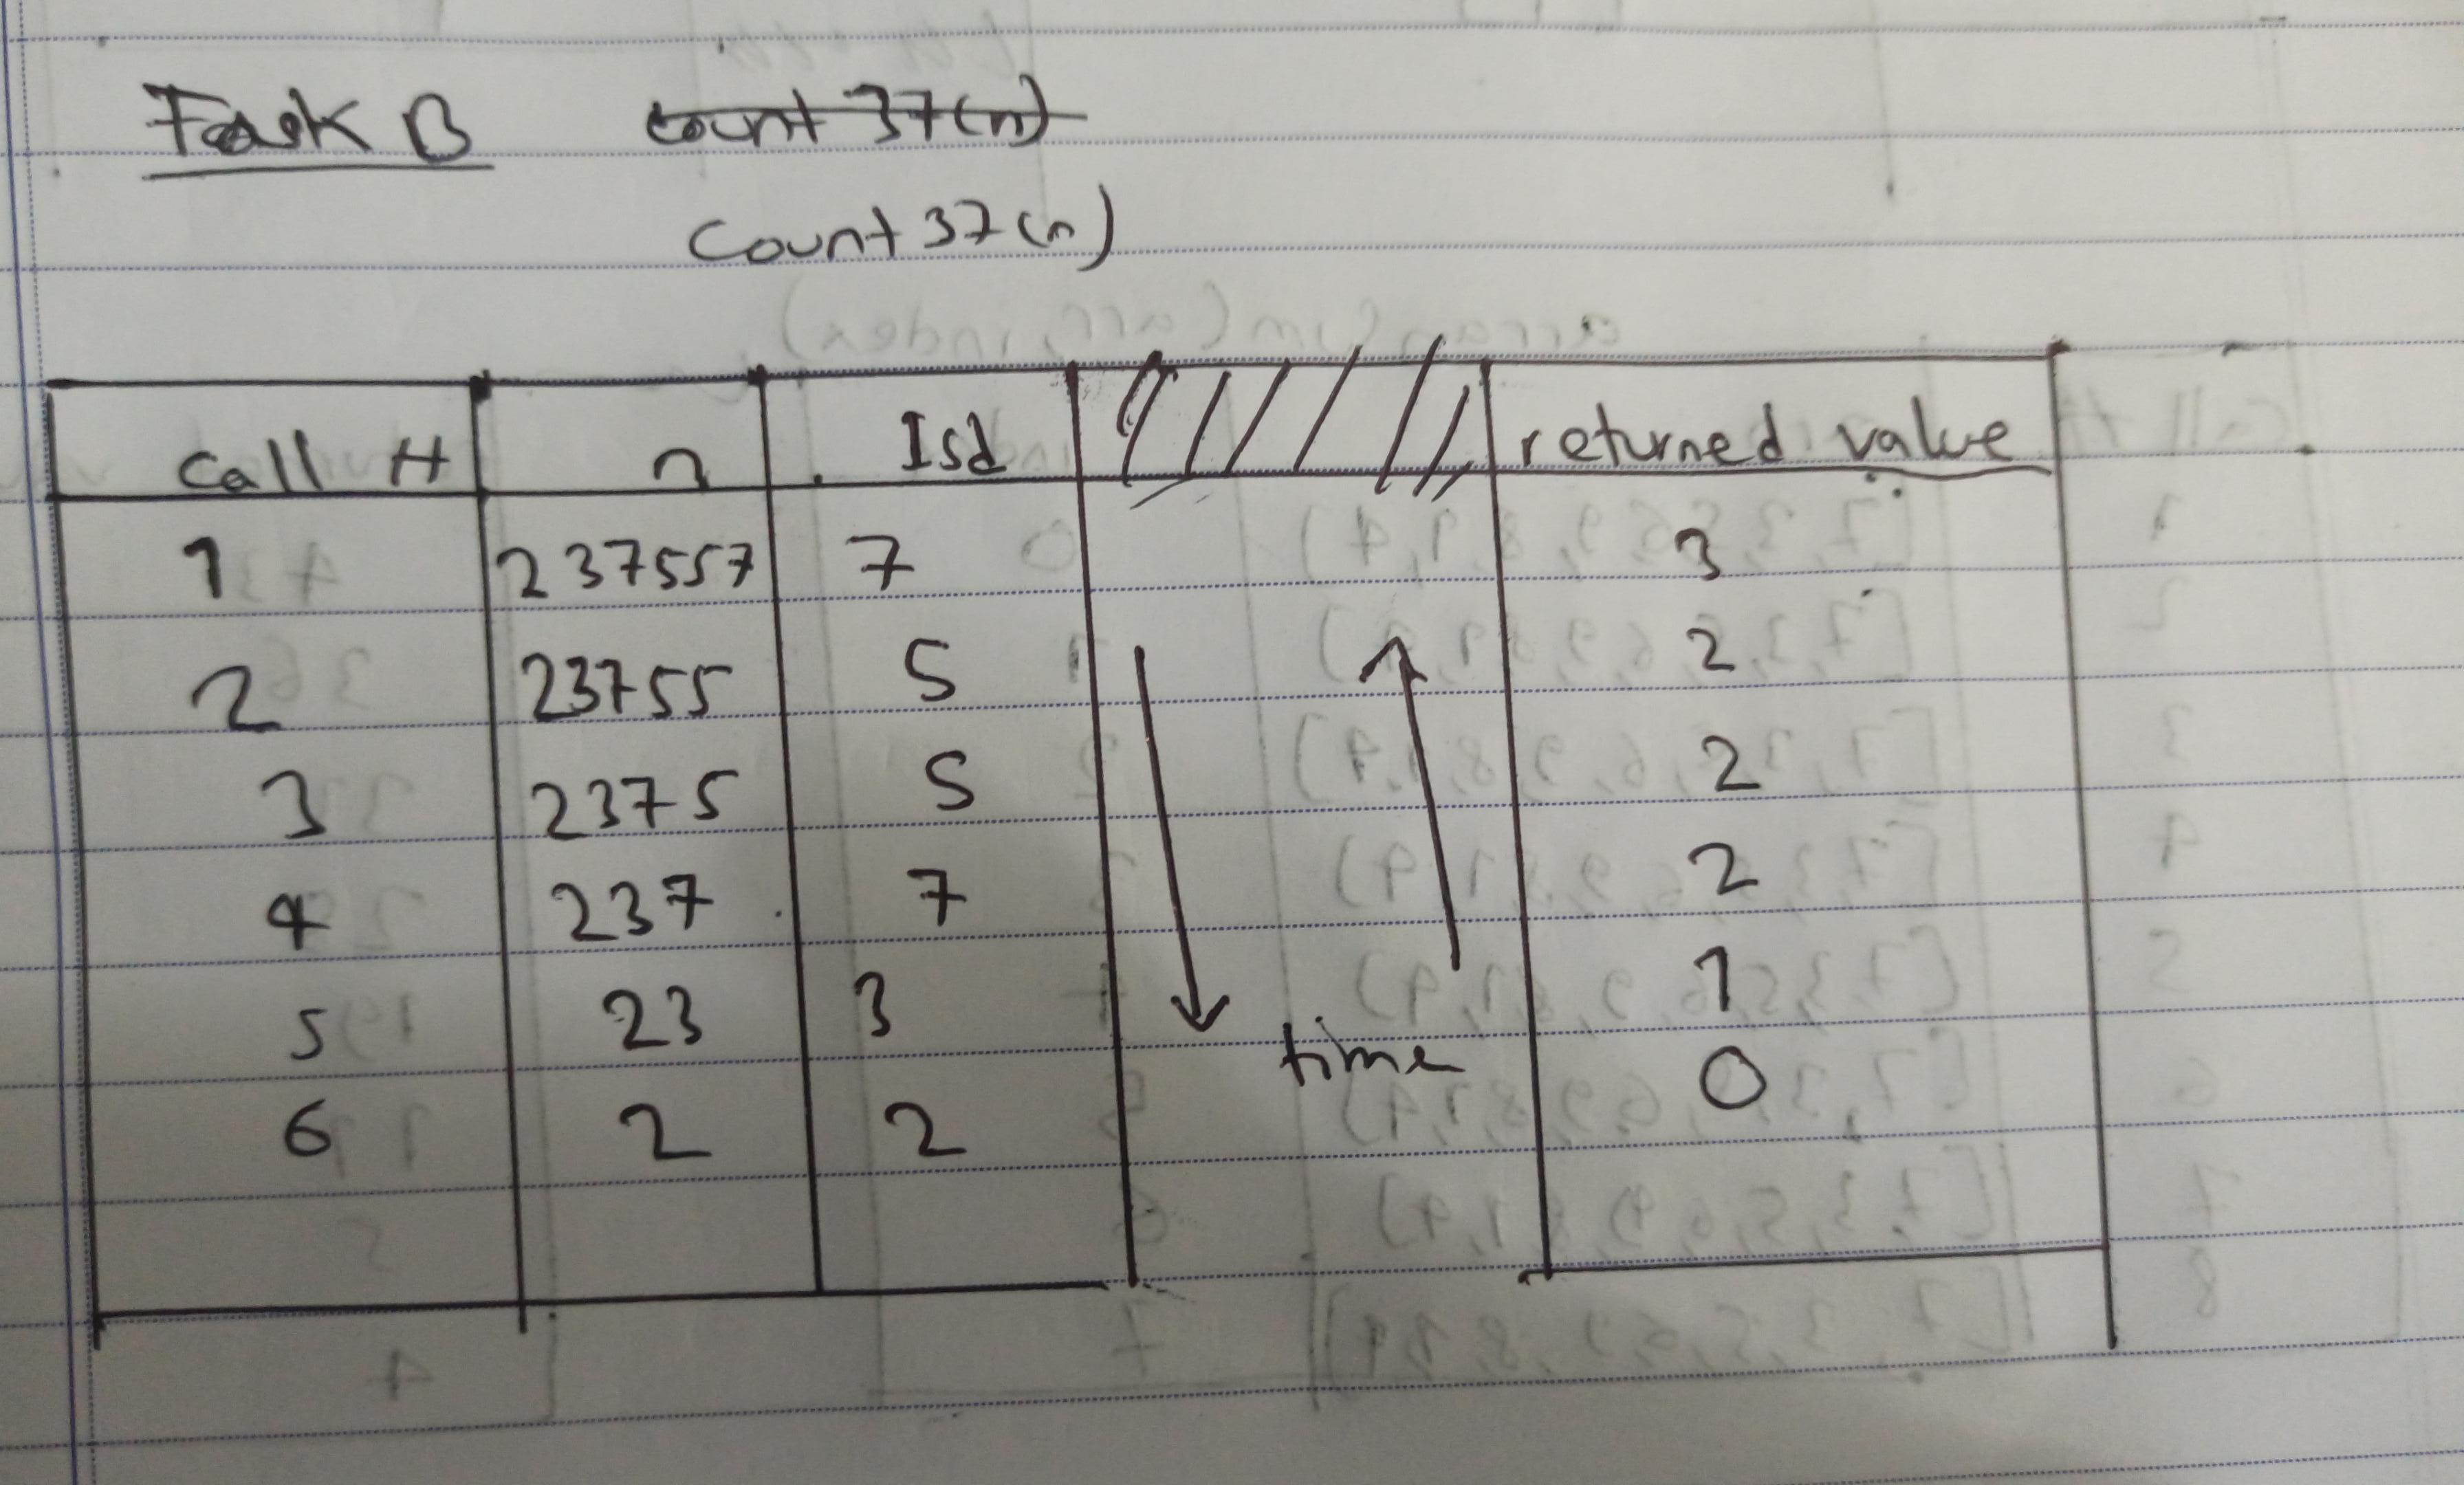 Task B count 37(n)
Count 37(n)
Call # n lsd returned value
1 237557 7 3
2 23755 5 2
3 2375 5 2
4 237 7 2
5 23 3 1
time
6 2 2 0